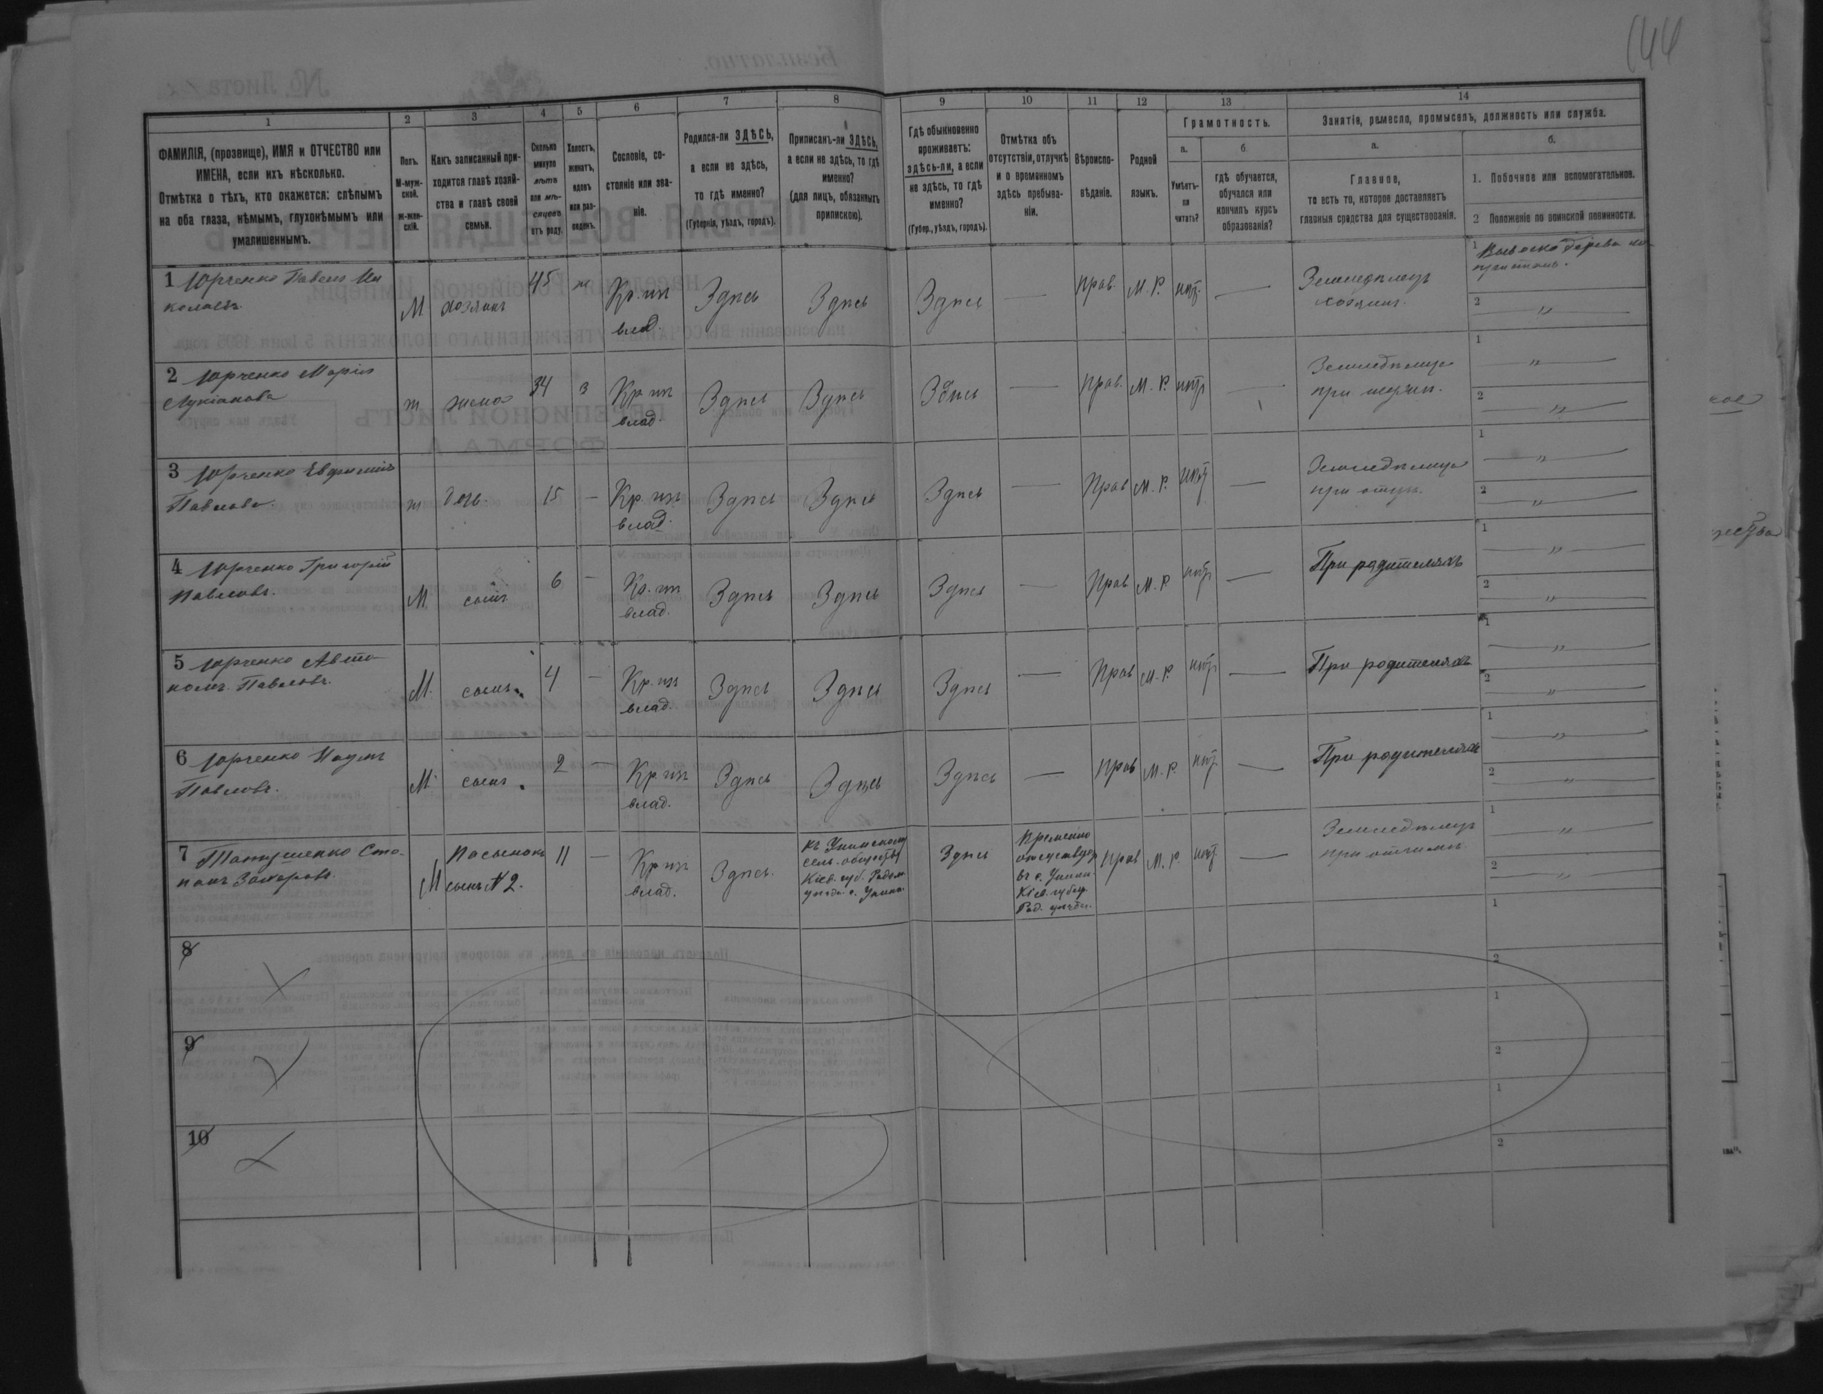 144
1
2
3
4
5
6
7
8
9
10
11
12
13
14
ФАМИЛІЯ, (прозвище), ИМЯ и ОТЧЕСТВО или
ИМЕНА, если ихъ нѣсколько.
Отмѣтка о тѣхъ, кто окажется: слѣпымъ
на оба глаза, нѣмымъ, глухонѣмымъ или
умалишеннымъ.
Полъ.
М-муж-
ской.
ж-жен-
скій.
Какъ записанный при-
ходится главѣ хозяй-
ства и главѣ своей
семьи.
Сколько
минуло
лѣтъ
или мѣ-
сяцевъ
отъ роду.
Холостъ,
женатъ,
вдовъ
или раз-
веденъ.
Сословіе, со-
стояніе или зва-
ніе.
Родился-ли ЗДѢСЬ,
а если не здѣсь,
то гдѣ именно?
(Губернія, уѣздъ, городъ).
Приписанъ-ли ЗДѢСЬ,
а если не здѣсь, то гдѣ
именно?
(для лицъ, обязанныхъ
припискою).
Гдѣ обыкновенно
проживаетъ:
здѣсь-ли, а если
не здѣсь, то гдѣ
именно?
(Губер., уѣздъ, городъ).
Отмѣтка объ
отсутствіи, отлучкѣ
и о временномъ
здѣсь пребыва-
ніи.
Вѣроиспо-
вѣданіе.
Родной
языкъ.
Грамотность.
а.
Умѣетъ-
ли
читать?
б
гдѣ обучается,
обучался или
кончилъ курсъ
образованія?
Занятіе, ремесло, промыселъ, должность или служба.
а.
Главное,
то есть то, которое доставляетъ
главныя средства для существованія.
б.
1. Побочное или вспомогательное.
2 Положеніе по воинской повинности.
1 Юрченко Павелъ Ни
колаевъ
М
хозяинъ
45
ж
Кр. изъ
влад.
Здѣсь
Здѣсь
Здѣсь
—
Прав.
М. Р.
нѣт.
—
Земледѣлецъ
хозяинъ.
1 Вывозка дерева на
2 "
2 Юрченко Марія
Лукіанова
ж
жена
34
з
Кр. изъ
влад.
Здѣсь
Здѣсь
Здѣсь
—
Прав.
М. Р.
нѣт
—
Земледѣлица
при мужѣ.
1 "
2 "
3 Юрченко Евфимія
Павлова.
ж
дочь.
15
—
Кр. изъ
влад.
Здѣсь
Здѣсь
Здѣсь
—
Прав.
М. Р.
нѣт
—
Земледѣлица
при отцѣ.
1 "
2 "
4 Юрченко Григорій
Павловъ.
М.
сынъ
6
—
Кр. изъ
влад.
Здѣсь
Здѣсь
Здѣсь
—
Прав
М. Р.
нѣт
—
При родителяхъ
1 "
2 "
5 Юрченко Авто
номъ Павловъ.
М.
сынъ.
4
—
Кр. изъ
влад.
Здѣсь
Здѣсь
Здѣсь
—
Прав
М. Р.
нѣт
—
При родителяхъ
1 "
2 "
6 Юрченко Наумъ
Павловъ.
М.
сынъ.
2
—
Кр. изъ
влад.
Здѣсь
Здѣсь
Здѣсь
—
Прав
М. Р.
нѣт
—
При родителяхъ
1 "
2 "
7 Сте-
панъ Захаровъ.
М
Пасынокъ
сынъ N 2.
11
—
Кр. изъ
влад.
Здѣсь.
Къ
сель. общества
Кіев. губ. Радом.
уѣзда с.
Здѣсь
Временно
въ с.
Кіев. губер.
Рад. уѣзда.
Прав
М. Р.
нѣт.
—
Земледѣлецъ
при отчимѣ
1 "
2 "
8
1
2
9
1
2
10
1
2